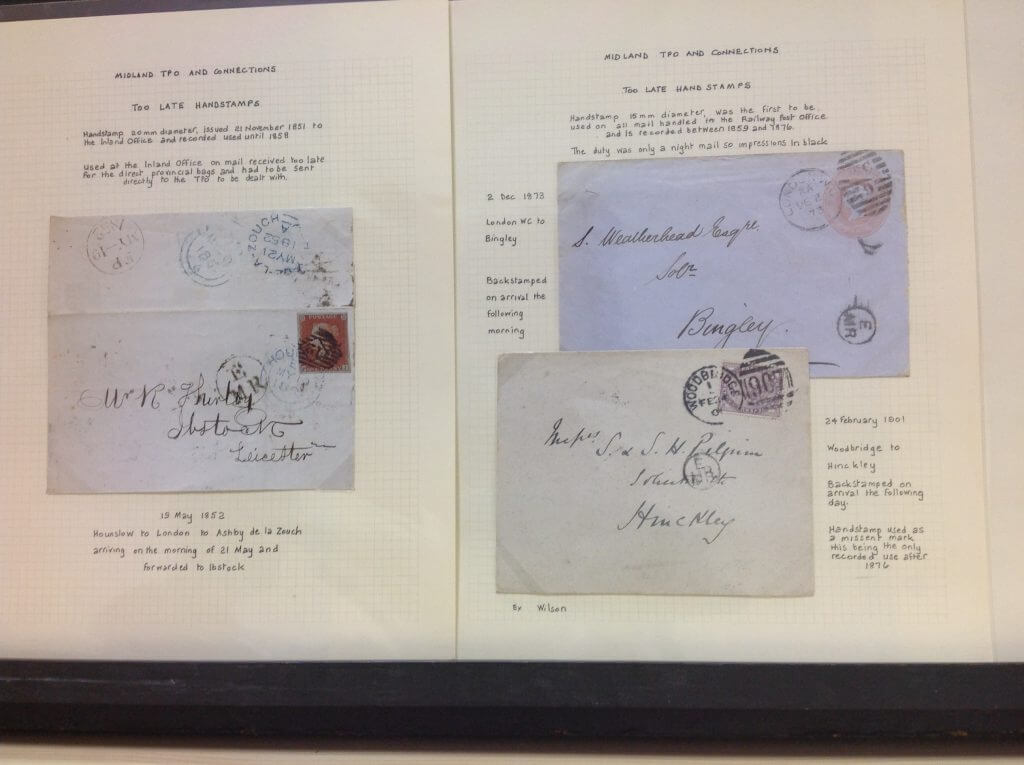 MIDLAND TPO AND CONNECTIONS
TOO LATE HANDSTAMPS
Handstamp 20mm diameter, issued 21 November 1851 to
the Inland Office and recorded used until 1858
Used at the Inland Office on mail received too late
for the direct provincial bags and had to be sent
directly to the TPO to be dealt with.
ZOUCH
A
MY21
1852
POSTAGE
HOU
E
MR
Mr R Thirlby
Ibstock
Leicester
19 May 1852
Hounslow to London to Ashby de la Zouch
arriving on the morning of 21 May and
forwarded to Ibstock
MIDLAND TPO AND CONNECTIONS
TOO LATE HAND STAMPS
Handstamp 15mm diameter, was the first to be
used on all mail handled in the Railway Post Office
and is recorded between 1859 and 1876.
The duty was only a night mail so impressions in black
2 Dec 1873
London WC to
Bingley
Backstamped
on arrival the
following
morning
LONDON
DE 2
73
S. Weatherhead Esqre.
Solr
Bingley.
E
MR
WOODBRIDGE
1
FE
907
S. & S. H. Pilgrim
Hinckley
E
MR
24 February 1901
Woodbridge to
Hinckley
Backstamped on
arrival the following
day.
Handstamp used as
a missent mark
this being the only
recorded use after
1876
Ex Wilson